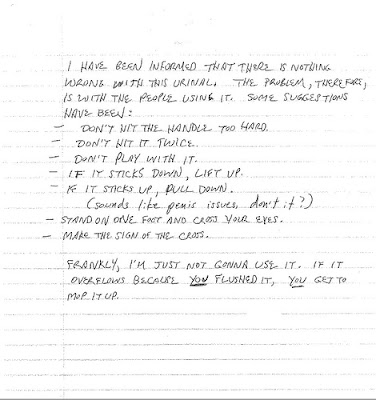 I HAVE BEEN INFORMED THAT THERE IS NOTHING
WRONG WITH THIS URINAL. THE PROBLEM, THEREFORE,
IS WITH THE PEOPLE USING IT. SOME SUGGESTIONS
HAVE BEEN:
- DON'T HIT THE HANDLE TOO HARD.
- DON'T HIT IT TWICE.
- DON'T PLAY WITH IT.
- IF IT STICKS DOWN, LIFT UP.
- IF IT STICKS UP, PULL DOWN.
(sounds like penis issues, don't it?)
- STAND ON ONE FOOT AND CROSS YOUR EYES.
- MAKE THE SIGN OF THE CROSS.
FRANKLY, I'M JUST NOT GONNA USE IT. IF IT
OVERFLOWS BECAUSE YOU FLUSHED IT, YOU GET TO
MOP IT UP.